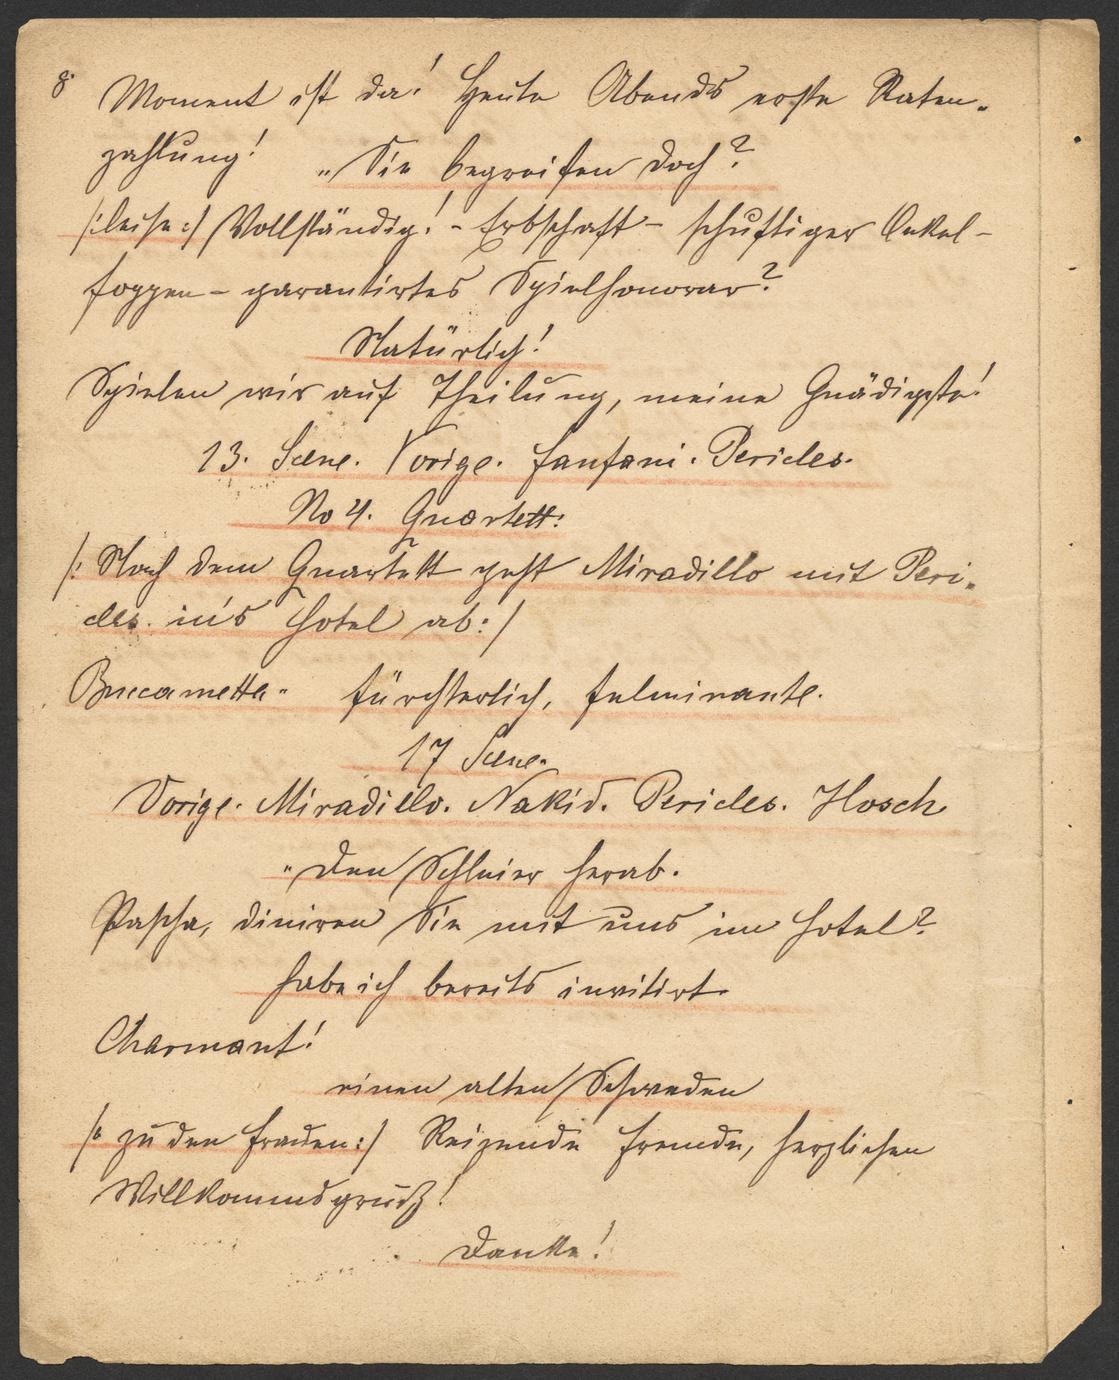 8
Moment ist da! Heute Abends erste Raten-
zahlung!
„ Sie begreifen doch?
/:leise:/ Vollständig! - Erbschaft - schuftiger Onkel -
foppen - garantirtes Spielhonorar?
Natürlich!
Spielen wir auf Theilung, meine Gnädigste!
13. Scene. Vorige. Fanfani. Pericles.
No 4. Quartett:
/: Nach dem Quartett geht Miradillo mit Peri-
cles. in's Hotel ab:/
Buccametta. fürchterlich, fulminante.
17 Scene.
Vorige. Miradillo. Nakid. Pericles. Hosch
„ Den Schleier herab.
Pascha, diniren Sie mit uns im Hotel?
Habe ich bereits invitirt.
Charmant!
einen alten Schweden
/: zu den Frauen:/ Reizende Fremde, herzlichen
Willkommsgruß!
Danke!